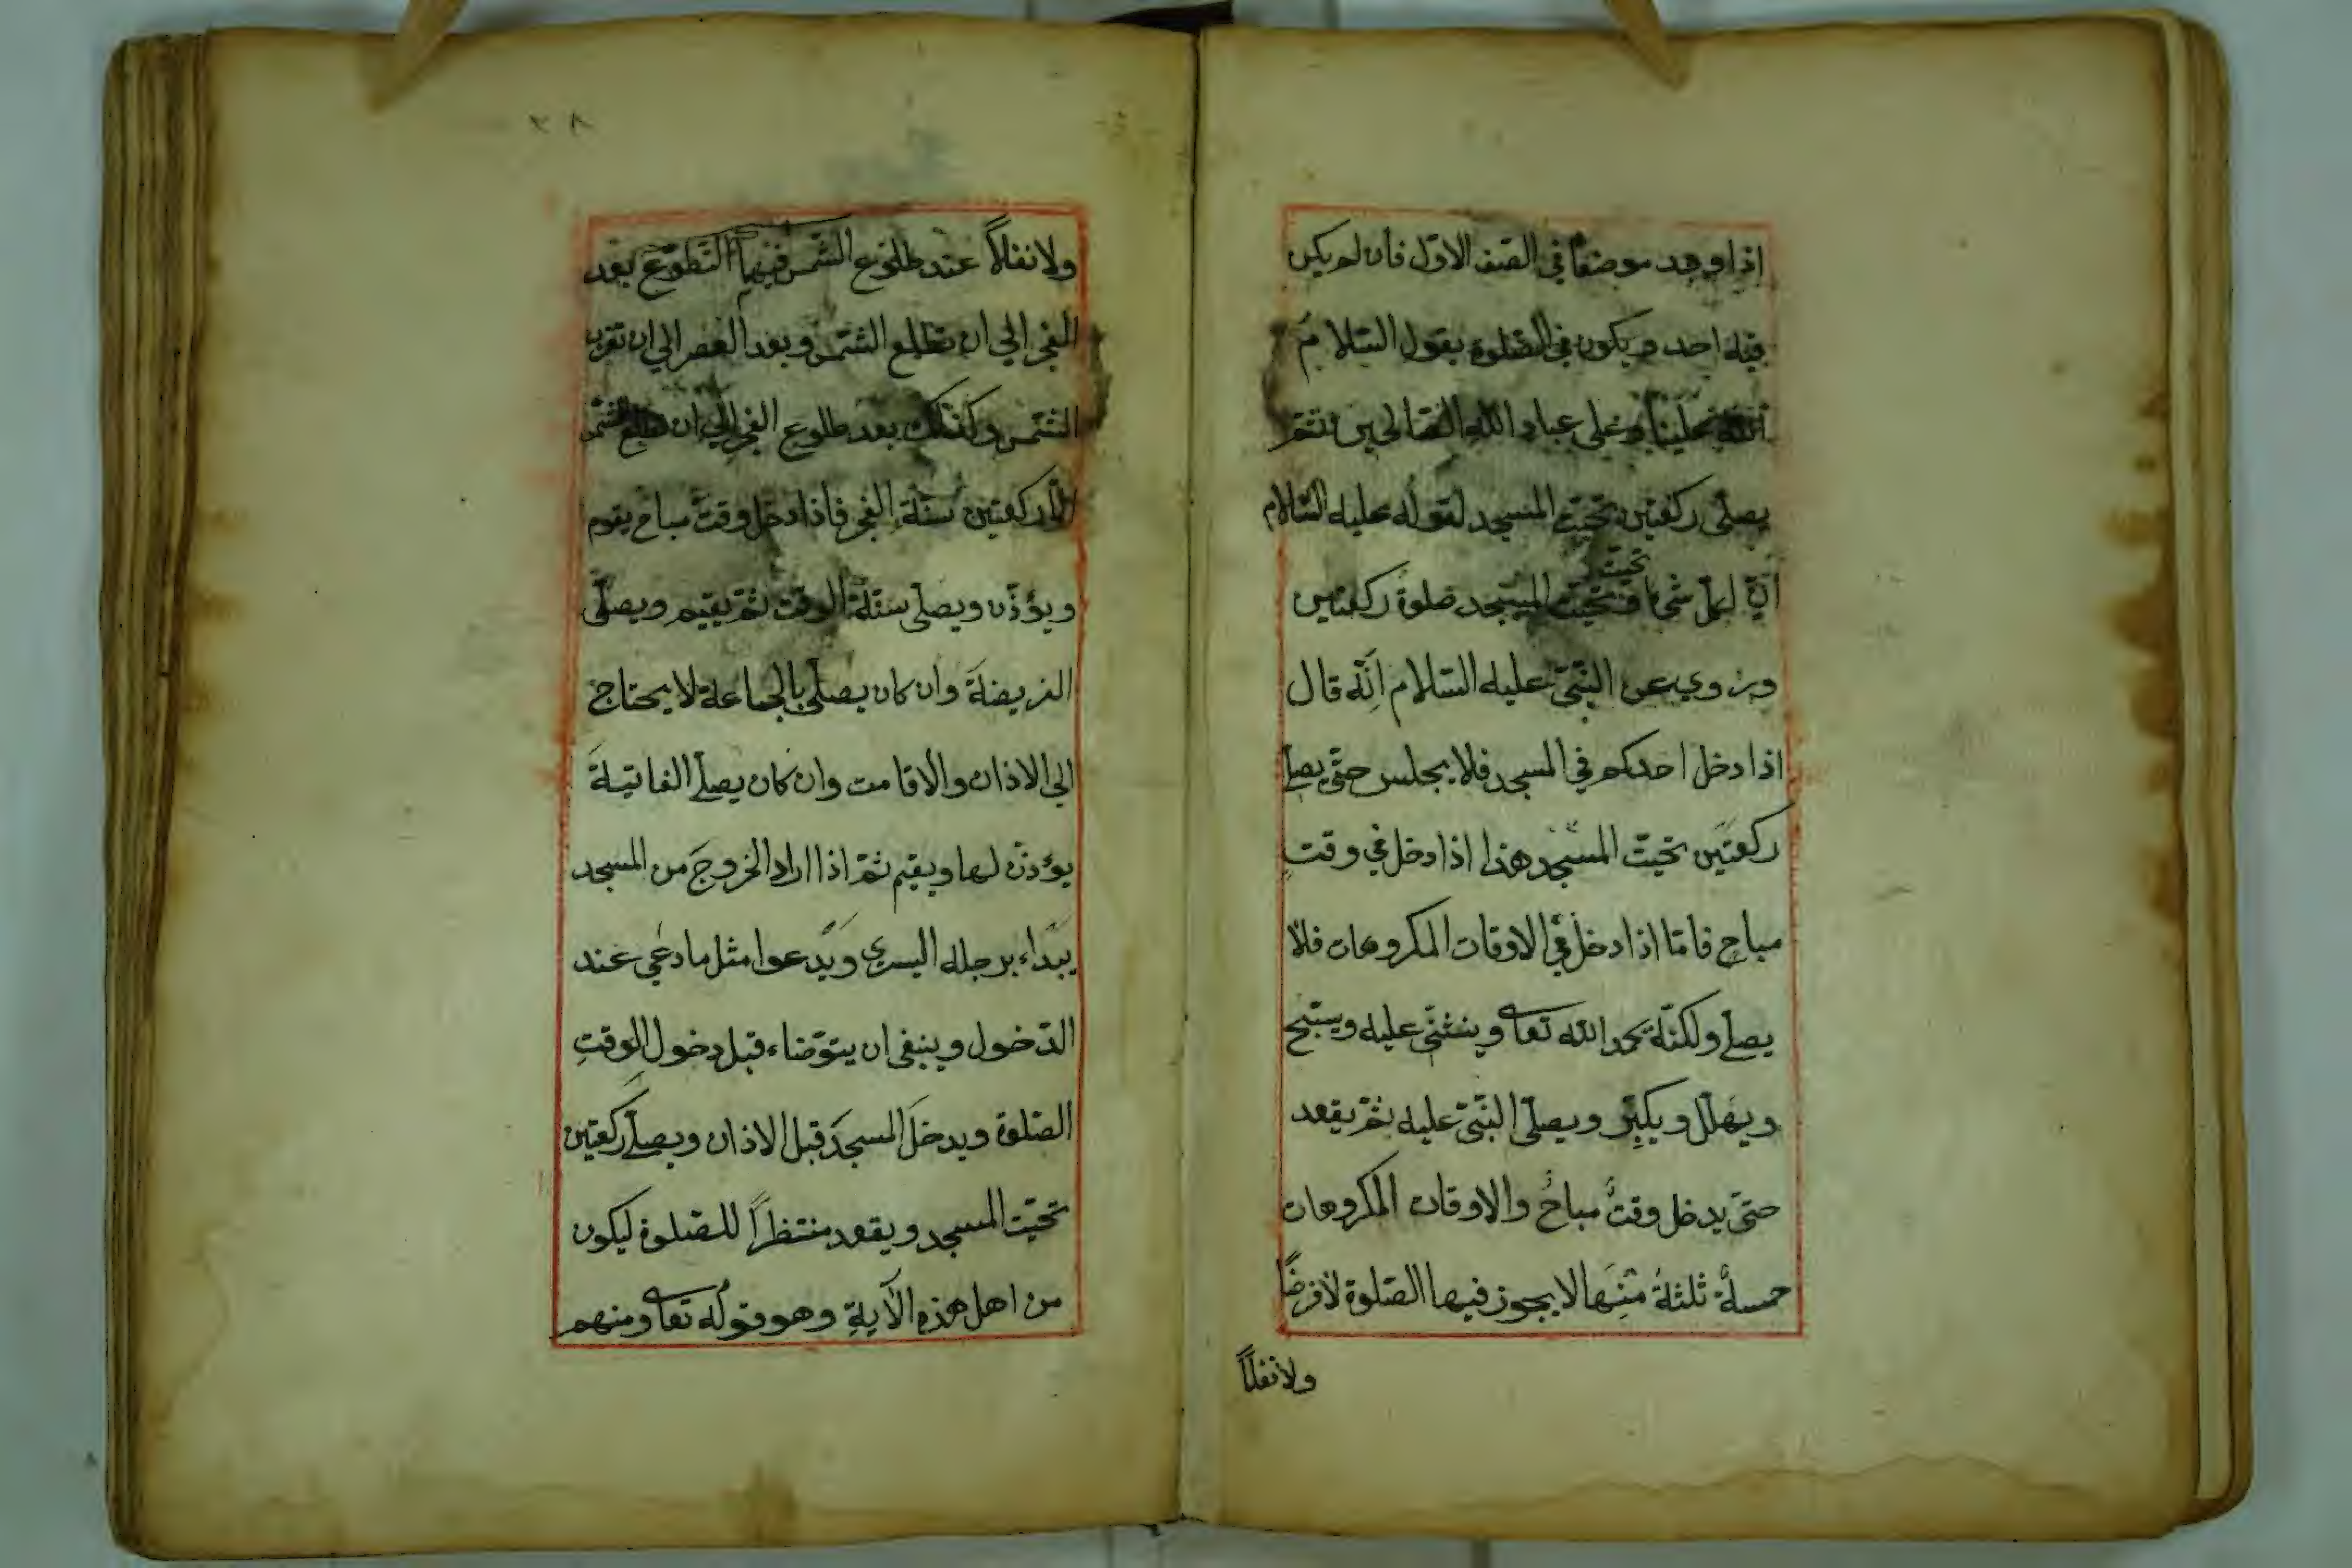 اذا وجد موضعًا في الصف الاول فان لم يكن
فيه احد ويكون في الصلوة يقول السلام
علينا وعلى عباد الله الصالحين ثم
يصلّى ركعتين تحيت المسجد لقوله عليه السّلام
انّ لكل شئ تحيت وتحيت المسجد صلوة ركعتين
وروي عن النّبىّ عليه السّلام انّه قال
اذا دخل احدكم في المسجد فلا يجلس حتّى يصلّ
ركعتين تحيت المسجد هذا اذا دخل في وقتٍ
مباح فامّا اذا دخل في الاوقات المكروهات فلا
يصلّ ولكنّه يحمد الله تعا ويثنى عليه ويسبّح
ويهلّل ويكبّر ويصلّى النّبىّ عليه ثمّ يقعد
حتّى يدخل وقتٌ مباحٌ والاوقات المكروهات
خمسةٌ ثلثةٌ منها لا يجوز فيها الصّلوة لا فرضًا
ولا نفلًا
٣٨
ولا نفلًا عند طلوع الشّمس فيها التّطوّع بعد
الفجر الى ان تطلع الشّمس وبعد العصر الى ان تغرب
الشّمس وكذلك بعد طلوع الفجر الى ان تطلع الشّمس
الّا ركعتين سنّة الفجر فاذا دخل وقت مباح يقوم
ويؤذّن ويصلّى سنّة الوقت ثمّ يقيم ويصلّى
الفريضة وان كان يصلّى بالجماعة لا يحتاج
الى الاذان والاقامت وان كان يصلّ الفاتية
يؤذّن لها ويقيم ثمّ اذا اراد الخروج من المسجد
يبداء برجله اليسرى ويدعوا مثل ما دعي عند
الدّخول وينبغى ان يتوّضاء قبل دخول الوقتِ
الصّلوة ويدخل المسجد قبل الاذان ويصلّ ركعتين
تحيّت المسجد ويقعد منتظرًا للصّلوة ليكون
من اهل هذه الآية وهو قوله تعا ومنهم